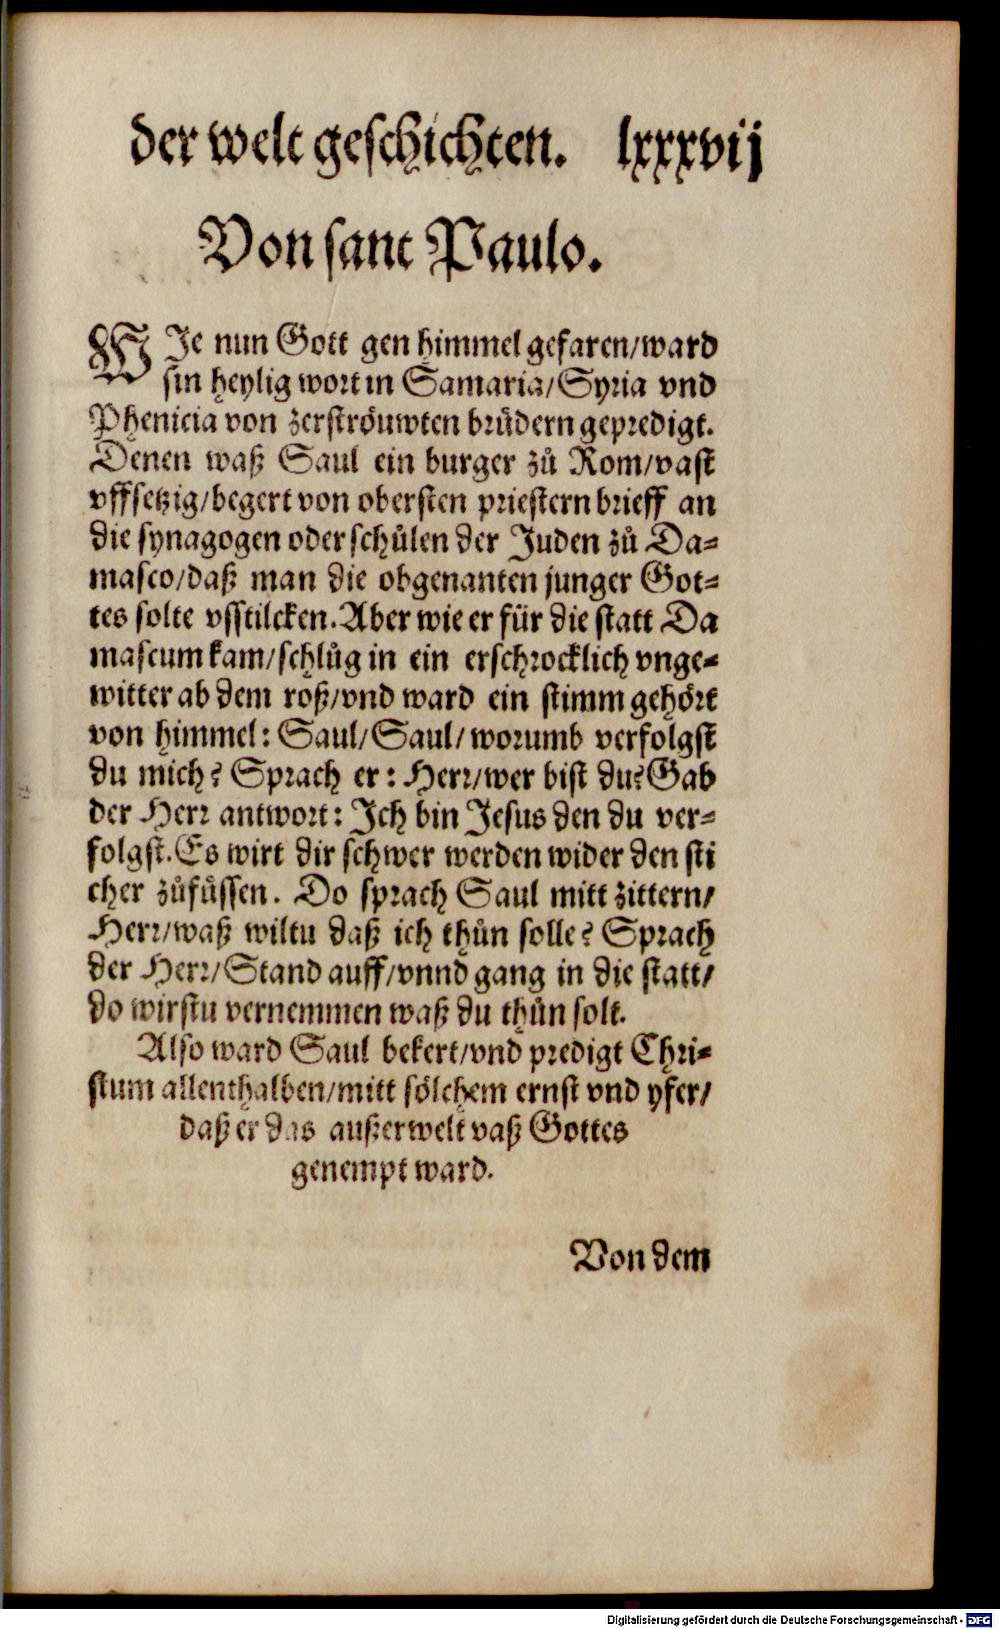 der welt geschichten. lxxxvij
Von sant Paulo.
WJe nun Gott gen himmel gefaren/ward
sin heylig wort in Samaria/Syria vnd
Phenicia von zerströuwten brüdern gepredigt.
Denen waß Saul ein burger zů Rom/vast
vffsetzig/begert von obersten priestern brieff an
die synagogen oder schůlen der Juden zů Da-
masco/daß man die obgenanten junger Got-
tes solte vsstilcken. Aber wie er für die statt Da
mascum kam/schlůg in ein erschrocklich vnge-
witter ab dem roß/vnd ward ein stimm gehört
von himmel: Saul/Saul/worumb verfolgst
du mich? Sprach er: Herr/wer bist du? Gab
der Herr antwort: Jch bin Jesus den du ver-
folgst. Es wirt dir schwer werden wider den sti
cher zůfůssen. Do sprach Saul mitt zittern/
Herr/waß wiltu daß ich thůn solle? Sprach
der Herr/Stand auff/vnnd gang in die statt/
do wirstu vernemmen waß du thůn solt.
Also ward Saul bekert/vnd predigt Chri-
stum allenthalben/mitt sölchem ernst vnd yfer/
daß er das außerwelt vaß Gottes
genempt ward.
Von dem
Digitalisierung gefördert durch die Deutsche Forschungsgemeinschaft - DFG